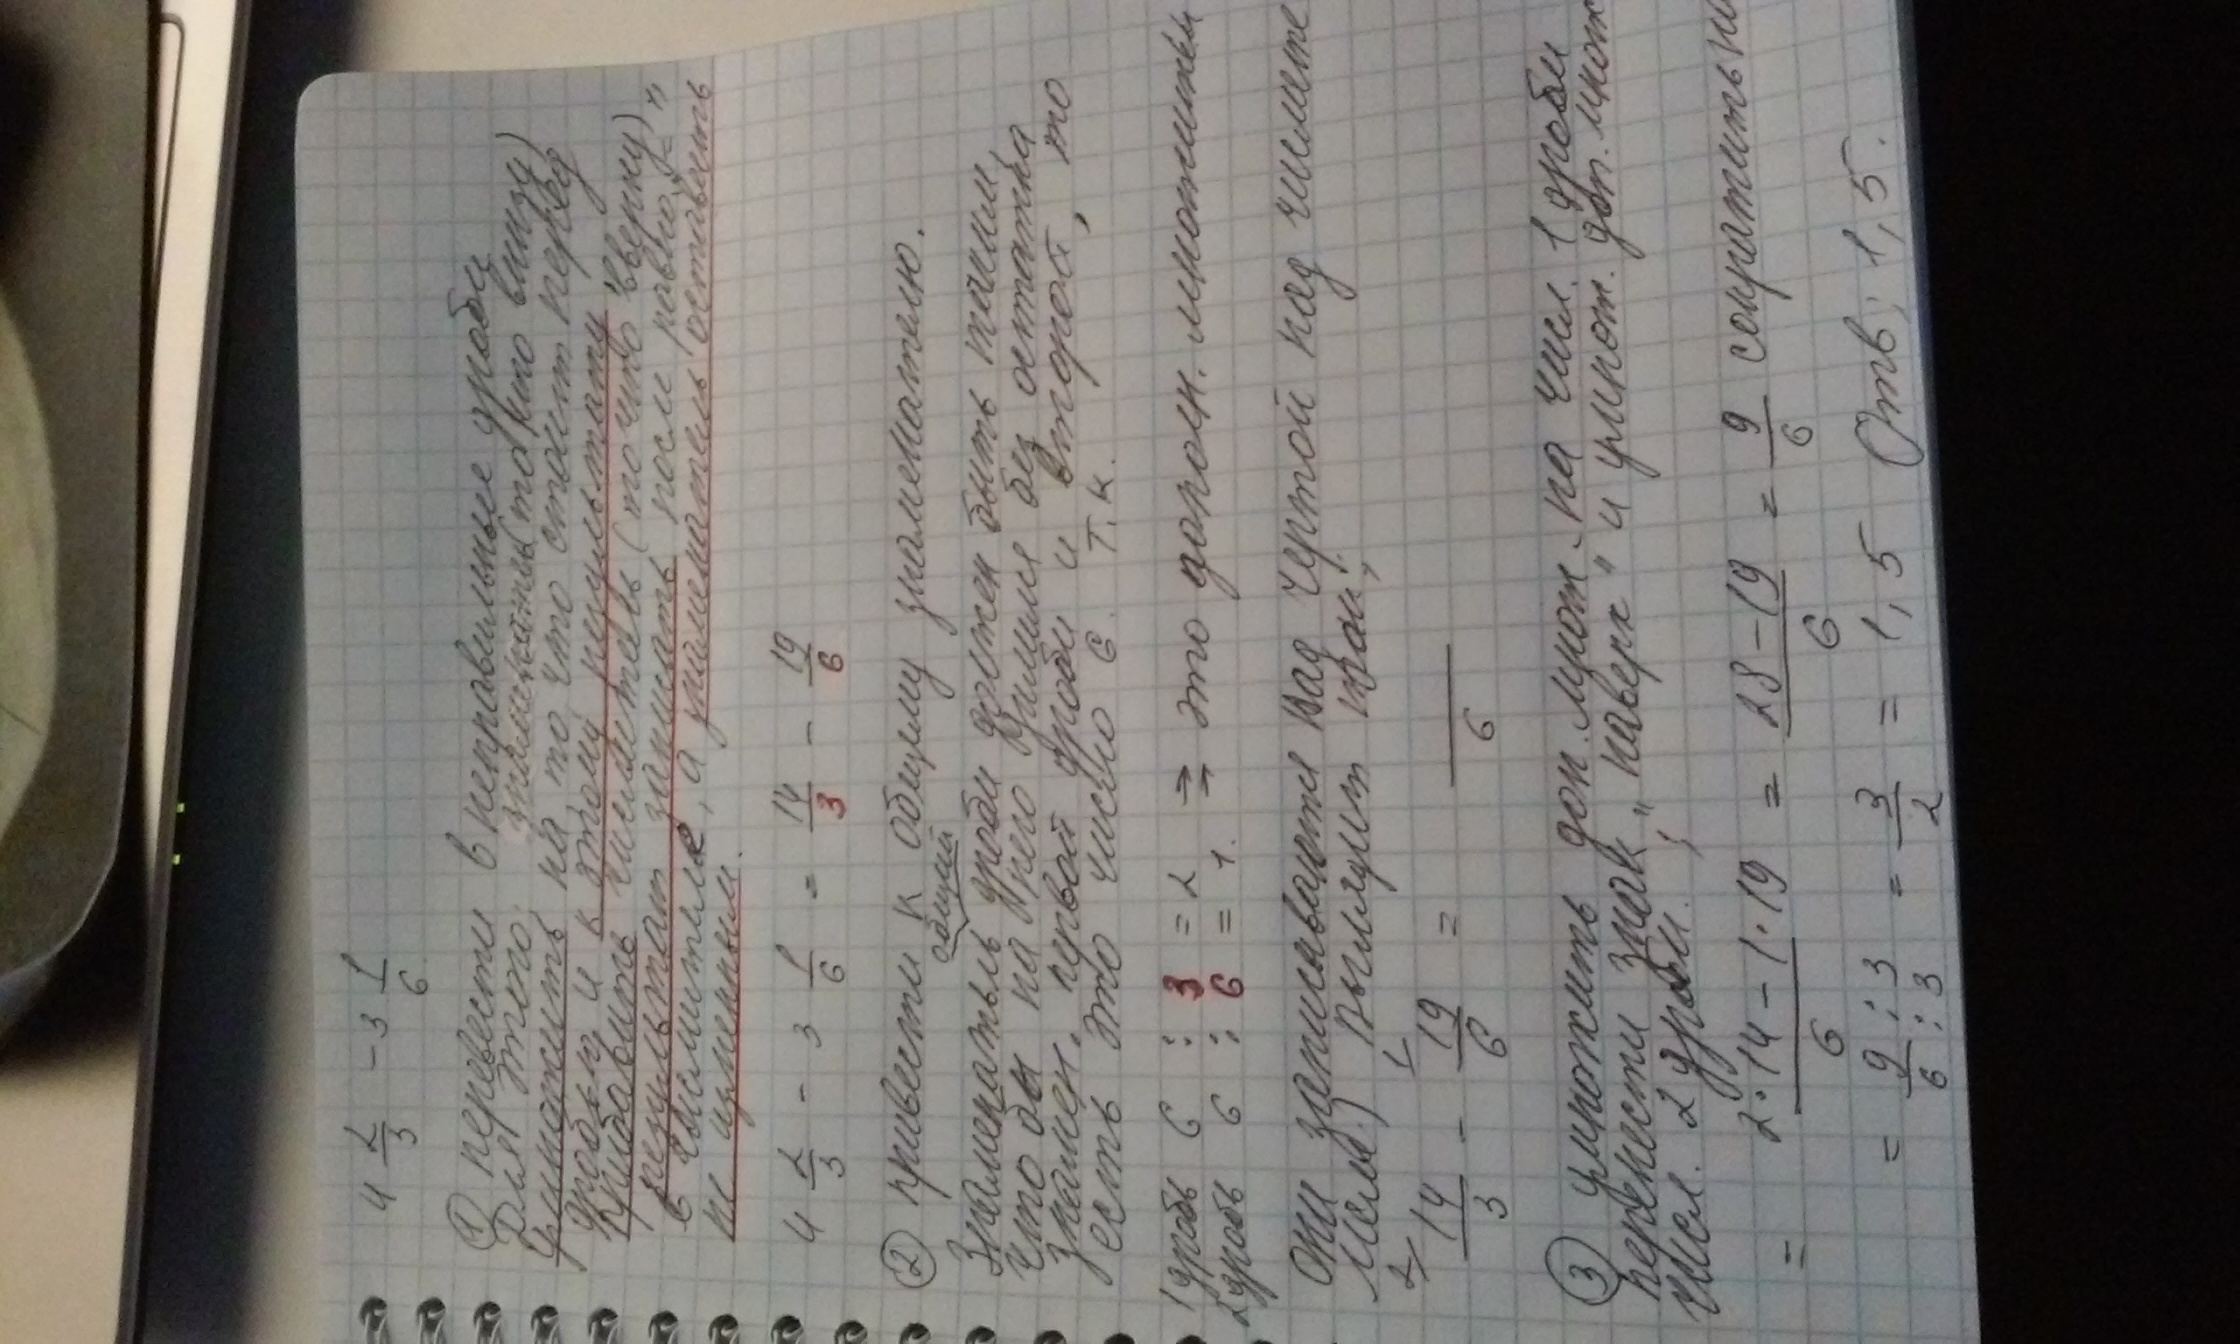 4 2/3 - 3 1/6
① перевести в неправильные дроби
Для этого: знаменатель (то что внизу)
умножить на то что стоит перед
дробью и к этому результату
прибавить числитель (то что вверху),
результат записать после равно „=“
в числителе, а знаменатель оставить
не изменным.
4 2/3 - 3 1/6 = 14/3 - 19/6
② привести к общему знаменателю.
общий
Знаменатель дроби должен быть таким
что бы на него делился без остатка
знамен. первой дроби и второй, то
есть это число 6. т.к.
1 дробь 6 : 3 = 2 ⇒ это дополн. множители
2 дробь 6 : 6 = 1.
Они записываются над чертой над числите
лем.) Рисуем
2/ 14/3 - 1/ 19/6 = /6
③ умножить доп. множ. на числ. 1 дроби
перенести знак „наверх“ и умнож. доп. множ
числ. 2 дроби.
= 2·14 - 1·19/6 = 28-19/6 = 9/6 сократить на
= 9:3/6:3 = 3/2 = 1,5 Отв: 1,5.